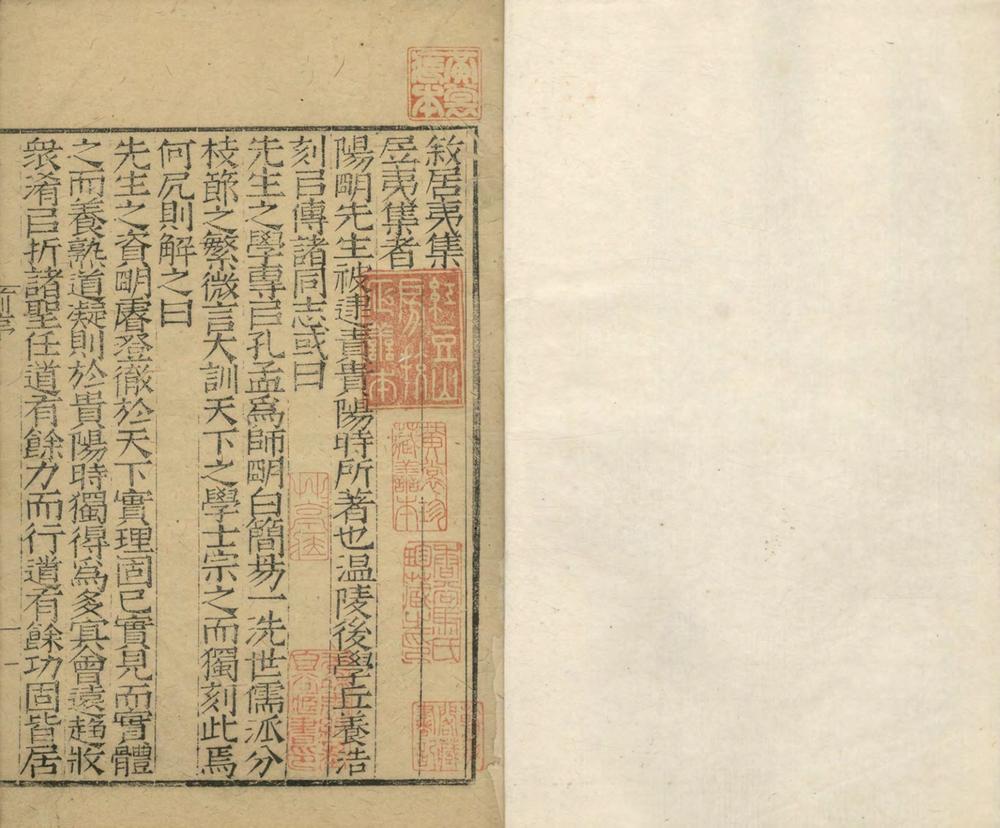 敘居夷集
居夷集者
陽朙先生被逮責貴陽時所著也温陵後學丘養浩
刻㠯傳諸同志或曰
先生之學專㠯孔孟爲師朙白簡易一洗世儒派分
枝節之繁微言大訓天下之學士宗之而獨刻此焉
何尻則解之曰
先生之資朙睿澄徹於天下實理固已實見而實體
之而養熟道凝則於貴陽時獨得爲多冥會遠趨收
衆淆㠯折諸聖任道有餘力而行道有餘功固皆居
紅豆山房校正善本
黄裳珍藏善本